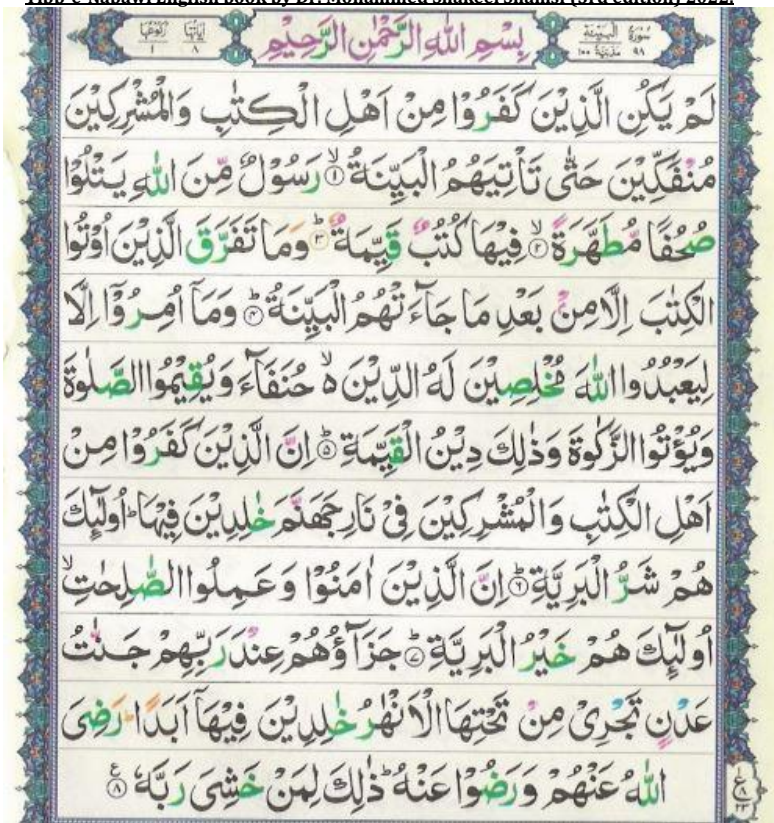 English book by Dr. Mohammed Shakeel Shamsi (3rd edition) 2022.
سُوْرَةُ الْبَيِّنَةِ ٩٨ مَدَنِيَّةٌ ١٠٠ بِسْمِ اللهِ الرَّحْمٰنِ الرَّحِيْمِ اٰيَاتُهَا ٨ رُكُوْعُهَا ١
لَمْ يَكُنِ الَّذِيْنَ كَفَرُوْا مِنْ اَهْلِ الْكِتٰبِ وَالْمُشْرِكِيْنَ
مُنْفَكِّيْنَ حَتّٰى تَاْتِيَهُمُ الْبَيِّنَةُ ۙ‏﴿۱﴾ رَسُوْلٌ مِّنَ اللهِ يَتْلُوْا
صُحُفًا مُّطَهَّرَةً ۙ‏﴿۲﴾ فِيْهَا كُتُبٌ قَيِّمَةٌ ؕ‏﴿۳﴾ وَمَا تَفَرَّقَ الَّذِيْنَ اُوْتُوا
الْكِتٰبَ اِلَّا مِنْۢ بَعْدِ مَا جَآءَتْهُمُ الْبَيِّنَةُ ؕ‏﴿۴﴾ وَمَاۤ اُمِرُوْۤا اِلَّا
لِيَعْبُدُوا اللهَ مُخْلِصِيْنَ لَهُ الدِّيْنَ ۙ۬ حُنَفَآءَ وَيُقِيْمُوا الصَّلٰوةَ
وَيُؤْتُوا الزَّكٰوةَ وَذٰلِكَ دِيْنُ الْقَيِّمَةِ ؕ‏﴿۵﴾ اِنَّ الَّذِيْنَ كَفَرُوْا مِنْ
اَهْلِ الْكِتٰبِ وَالْمُشْرِكِيْنَ فِيْ نَارِ جَهَنَّمَ خٰلِدِيْنَ فِيْهَا ؕ اُولٰٓئِكَ
هُمْ شَرُّ الْبَرِيَّةِ ؕ‏﴿۶﴾ اِنَّ الَّذِيْنَ اٰمَنُوْا وَعَمِلُوا الصّٰلِحٰتِ ۙ
اُولٰٓئِكَ هُمْ خَيْرُ الْبَرِيَّةِ ؕ‏﴿۷﴾ جَزَآؤُهُمْ عِنْدَ رَبِّهِمْ جَنّٰتُ
عَدْنٍ تَجْرِيْ مِنْ تَحْتِهَا الْاَنْهٰرُ خٰلِدِيْنَ فِيْهَاۤ اَبَدًا ؕ رَضِيَ
اللهُ عَنْهُمْ وَرَضُوْا عَنْهُ ؕ ذٰلِكَ لِمَنْ خَشِيَ رَبَّهٗ ‏﴿۸﴾